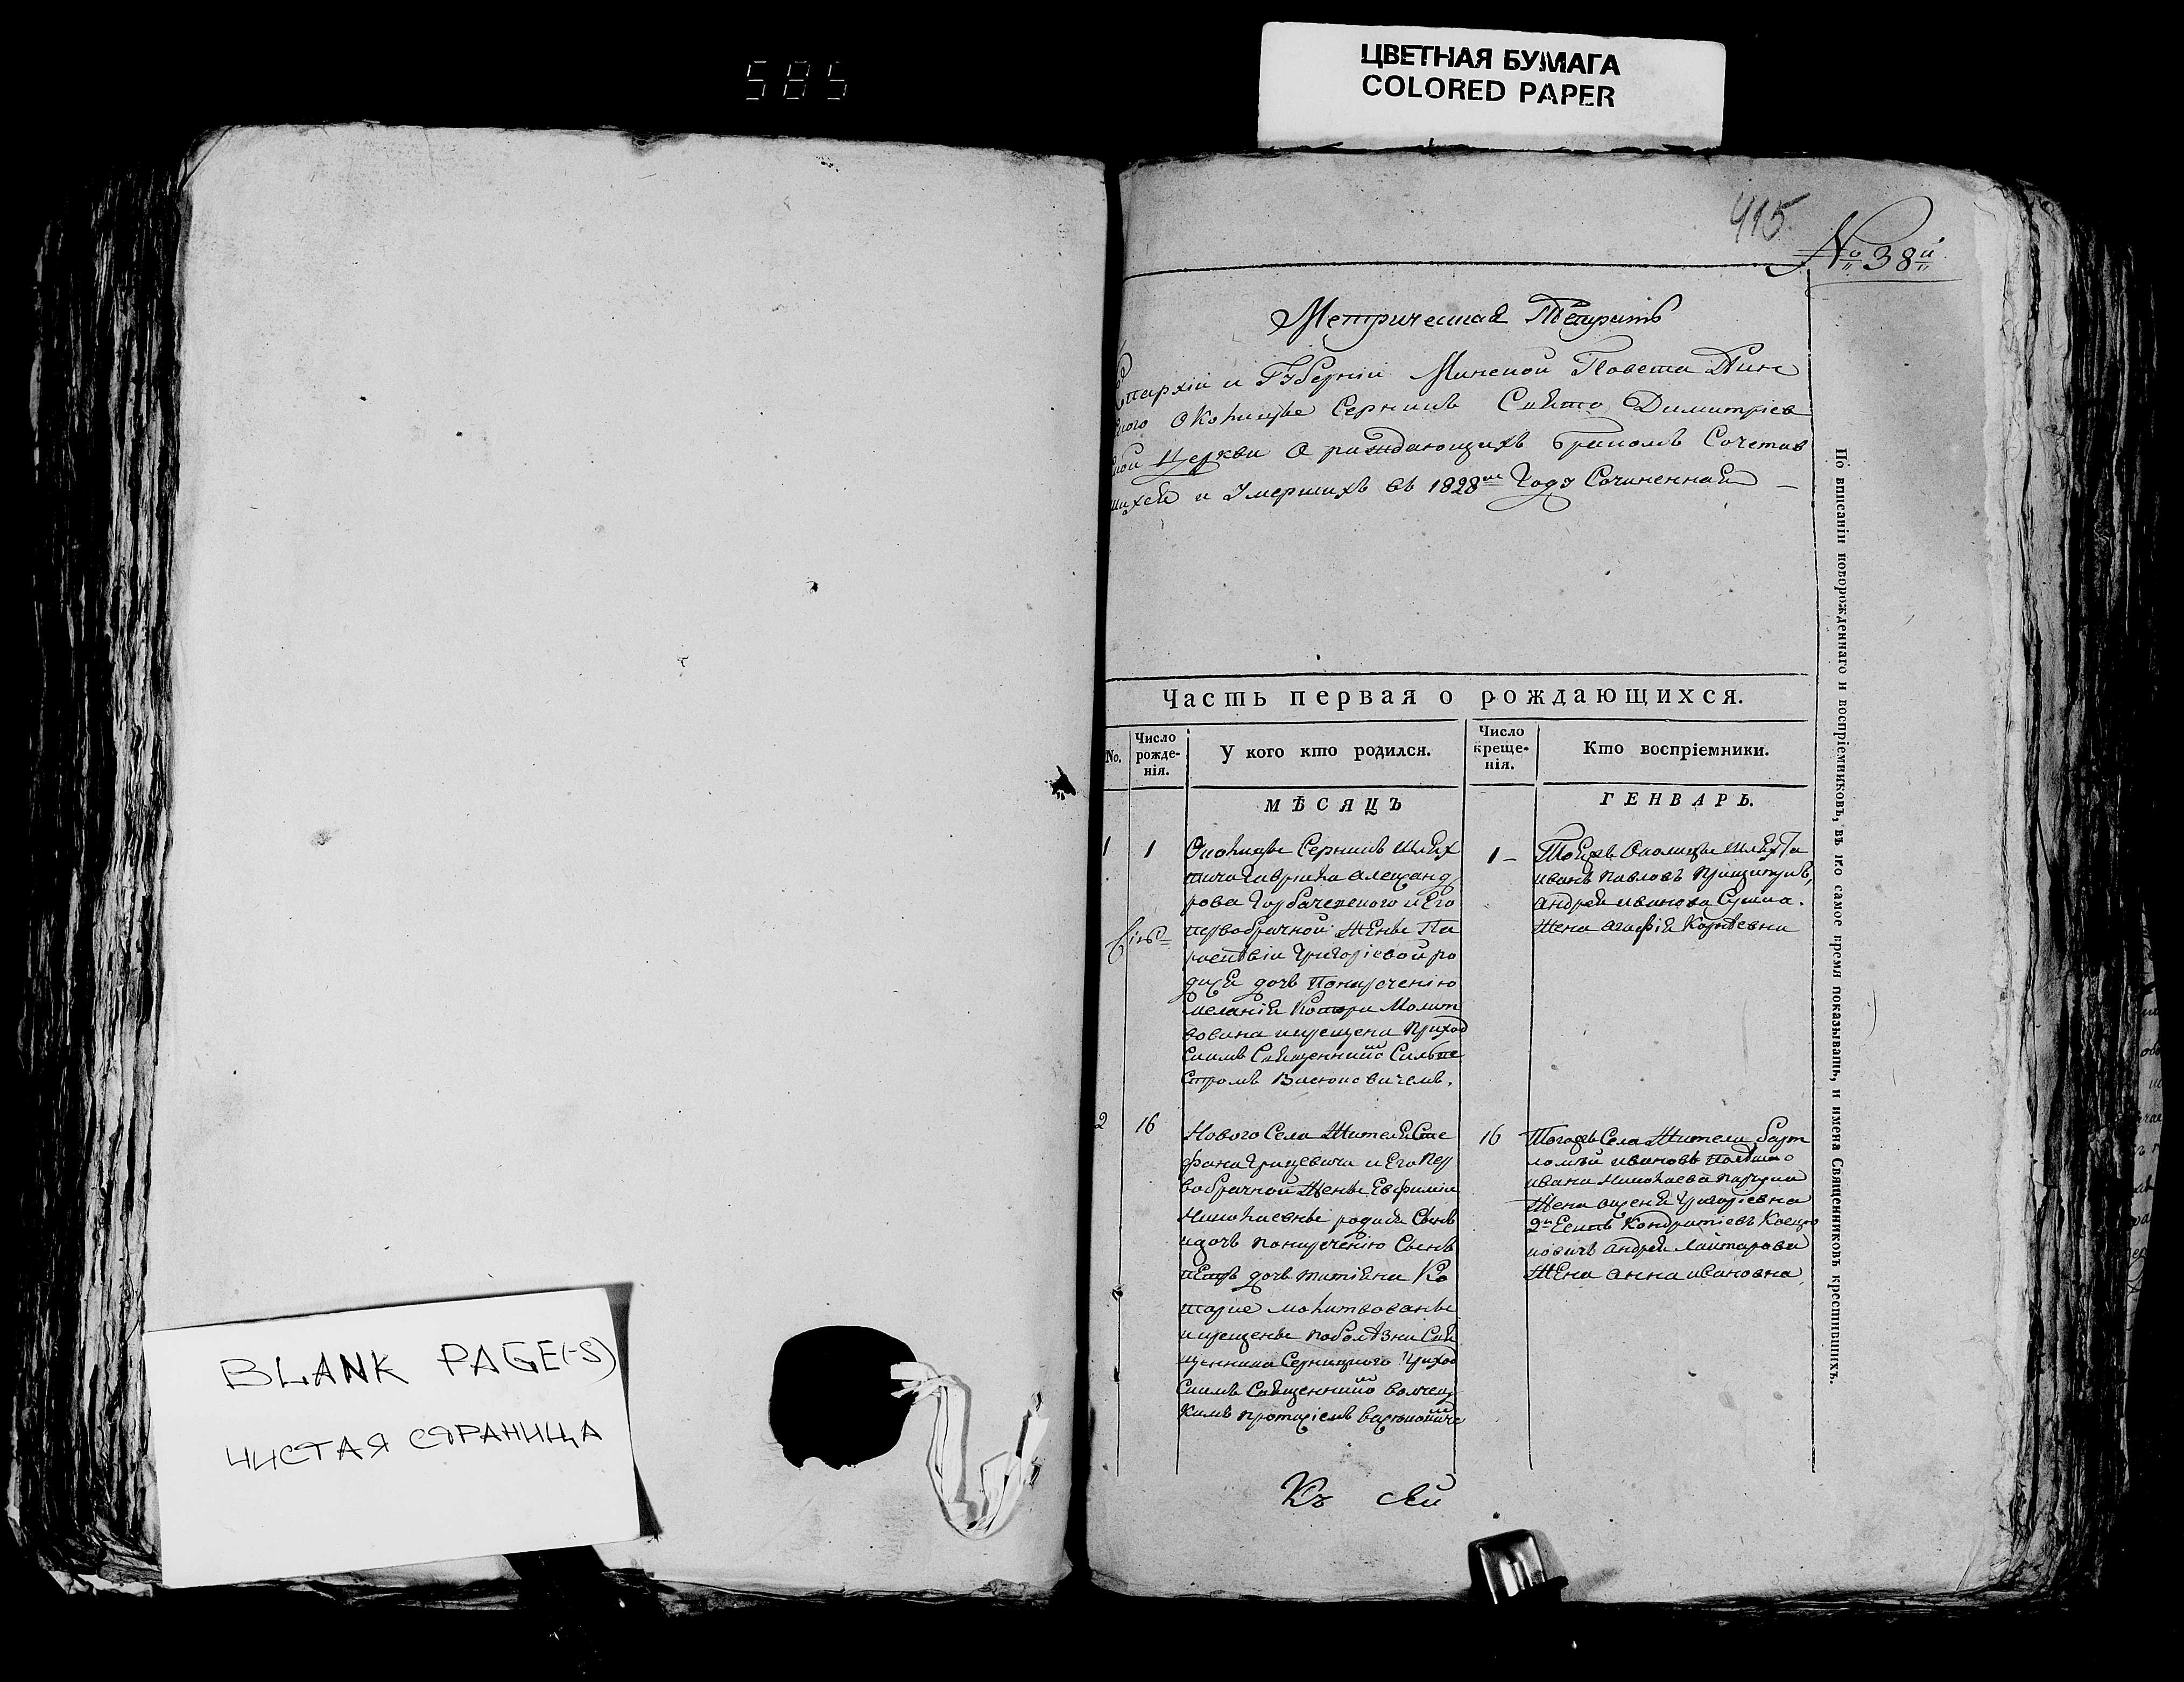 585
ЦВЕТНАЯ БУМАГА
COLORED PAPER
415
№ 38й
Метрическая Тетрать
Епархіи и Губерніи Минской Повета Пин
ского Околицы Серникъ Свято Димитріев
ской Церкви О раждающихъ бракомъ Сочетав
шихся и Умершихъ въ 1828м Году Сочиненная
Часть первая о рождающихся.
No.
Число рожденія.
У кого кто родился.
Число крещенія.
Кто воспріемники.
МѢСЯЦЪ
ГЕНВАРЬ.
1
1
Околицы Серникъ Шлях
тича Гаврила Александ
рова Горбачевского и Его
первобрачной Жены Па
раскевіи Григоріевой ро
дися дочь Понаречению
Меланія Котора Молит
вована и крещена Приход
скимъ Священником Сильве
стромъ
1
Тояжъ Околицы Шляхта
иванъ Павловъ
андрея иванова
Жена агафія Корнѣевна
2
16
Нового Села Жителя Сте
фана Грицевича и Его Пер
вобрачной Жены Евфиміи
Николаевны родися Сынъ
и дочь понаречению Сынъ
дочь татіяна Ко
торые молитвованы
и крещены поболѣзни Свя
щенника Серницкого Приход
скимъ Священником
16
Тогожъ Села Жители барт
ломѣй ивановъ
ивана Николаева
Жена Григоріевна
Кондратіевъ
андрея
Жена анна ивановна
Къ сей
По вписаніи новорожденнаго и воспріемниковъ, въ кое самое время показывать, и имена Священниковъ крестившихъ.
BLANK PAGE(-S)
ЧИСТАЯ СТРАНИЦА